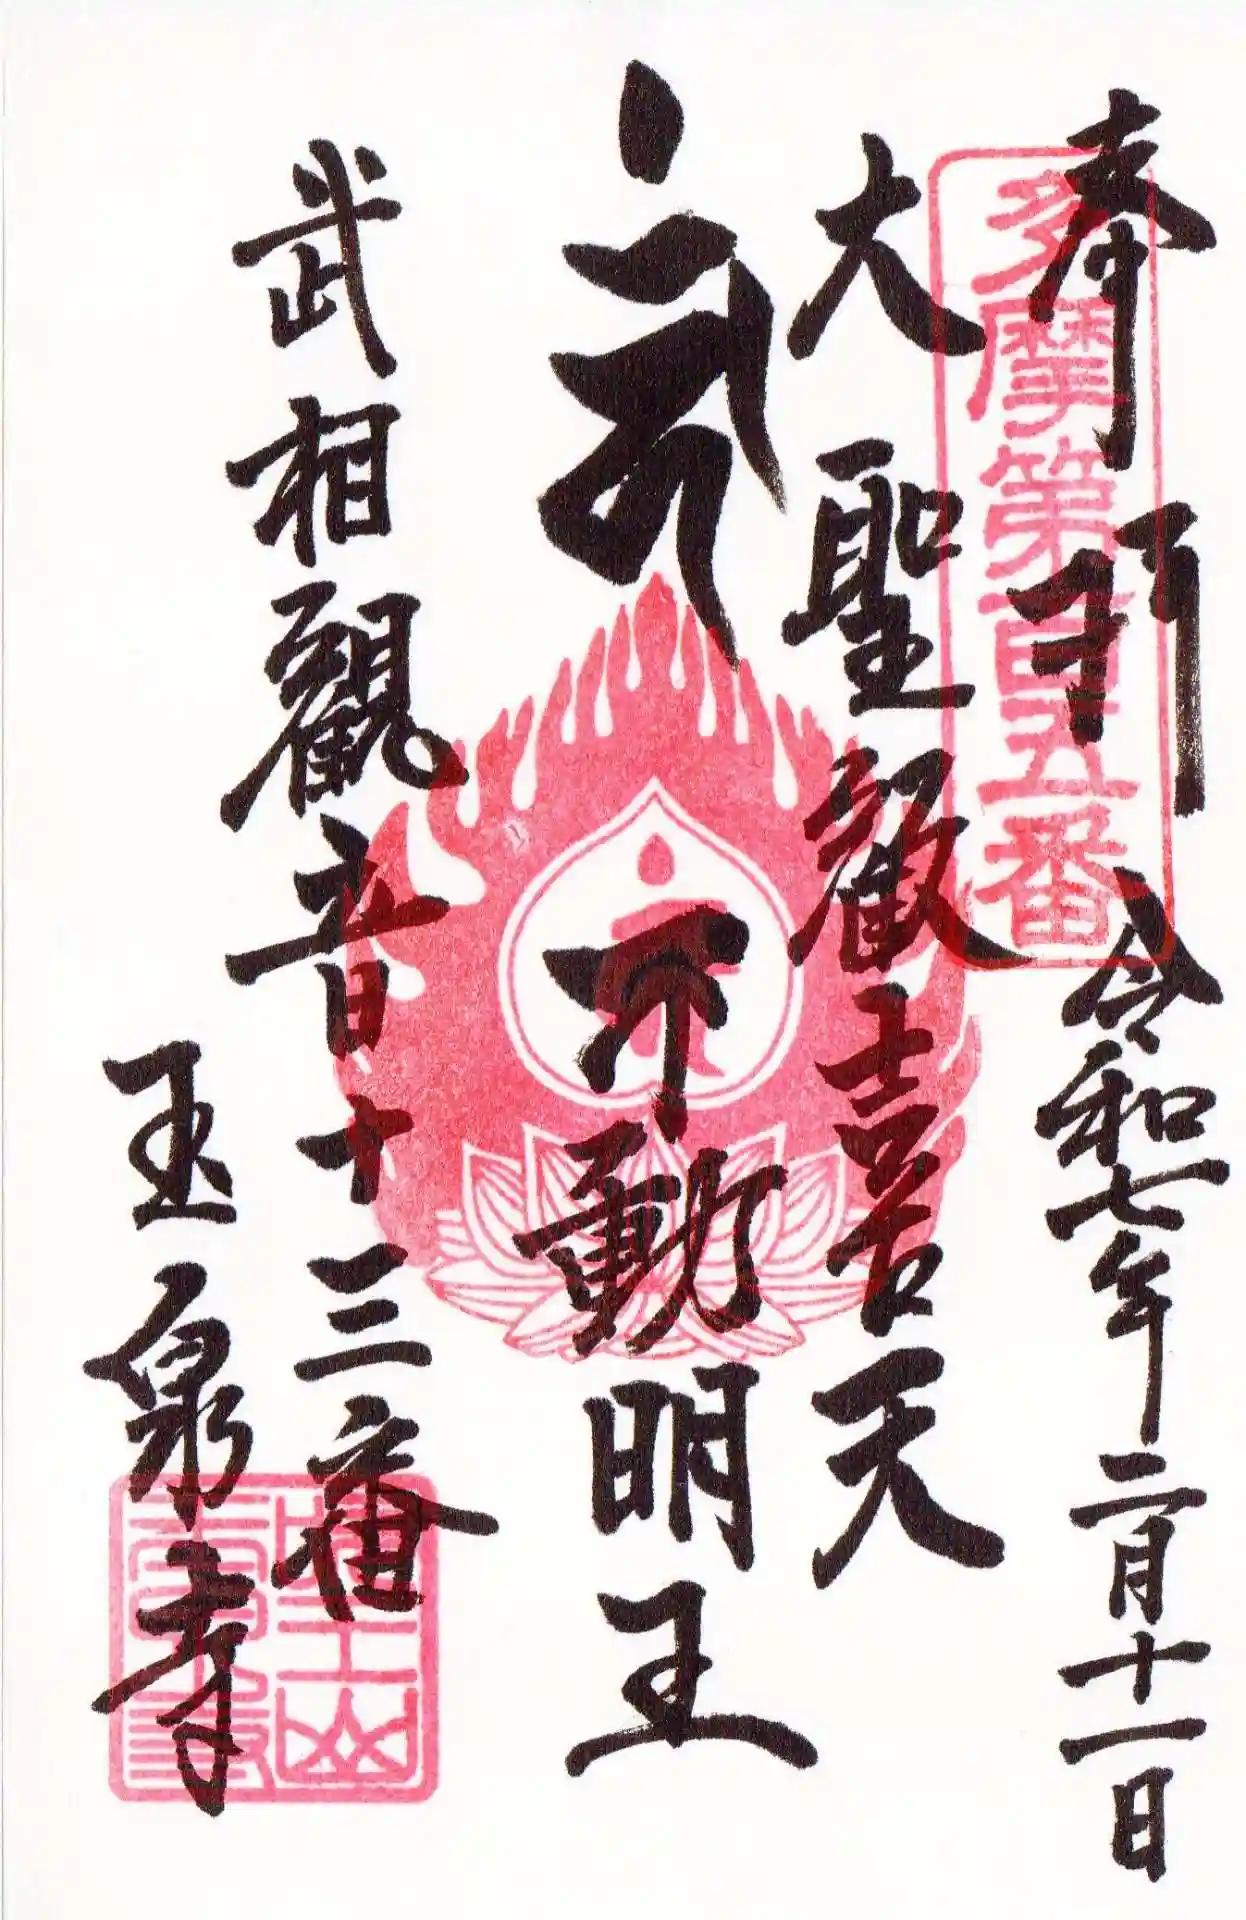 奉拝 令和七年二月十一日
多摩第百五番
大聖歡喜天
不動明王
武相觀音十三番
玉泉寺